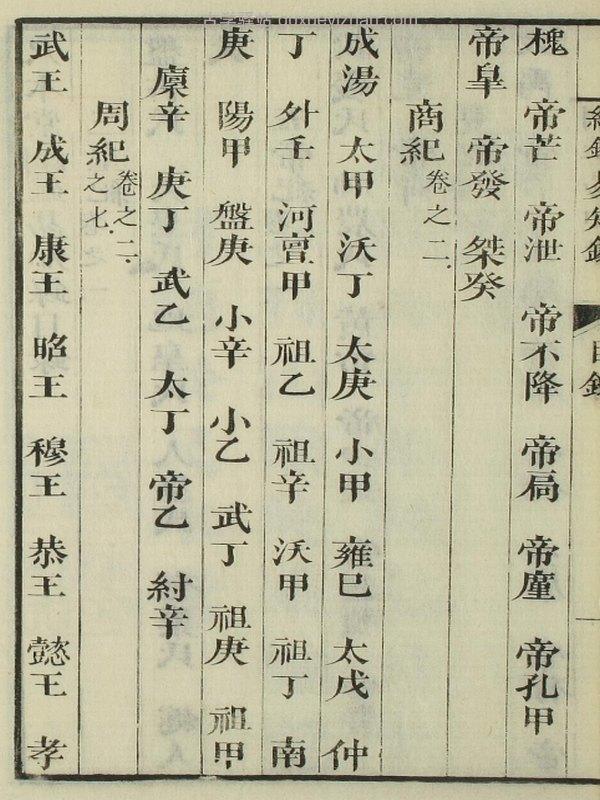 guoxueyizhan.com
綱鑑易知錄 目錄
槐 帝芒 帝泄 帝不降 帝扃 帝廑 帝孔甲
帝皐 帝發 桀癸
商紀 卷之二
成湯 太甲 沃丁 太庚 小甲 雍巳 太戊 仲
丁 外壬 河亶甲 祖乙 祖辛 沃甲 祖丁 南
庚 陽甲 盤庚 小辛 小乙 武丁 祖庚 祖甲
廩辛 庚丁 武乙 太丁 帝乙 紂辛
周紀 卷之二 之七
武王 成王 康王 昭王 穆王 恭王 懿王 孝